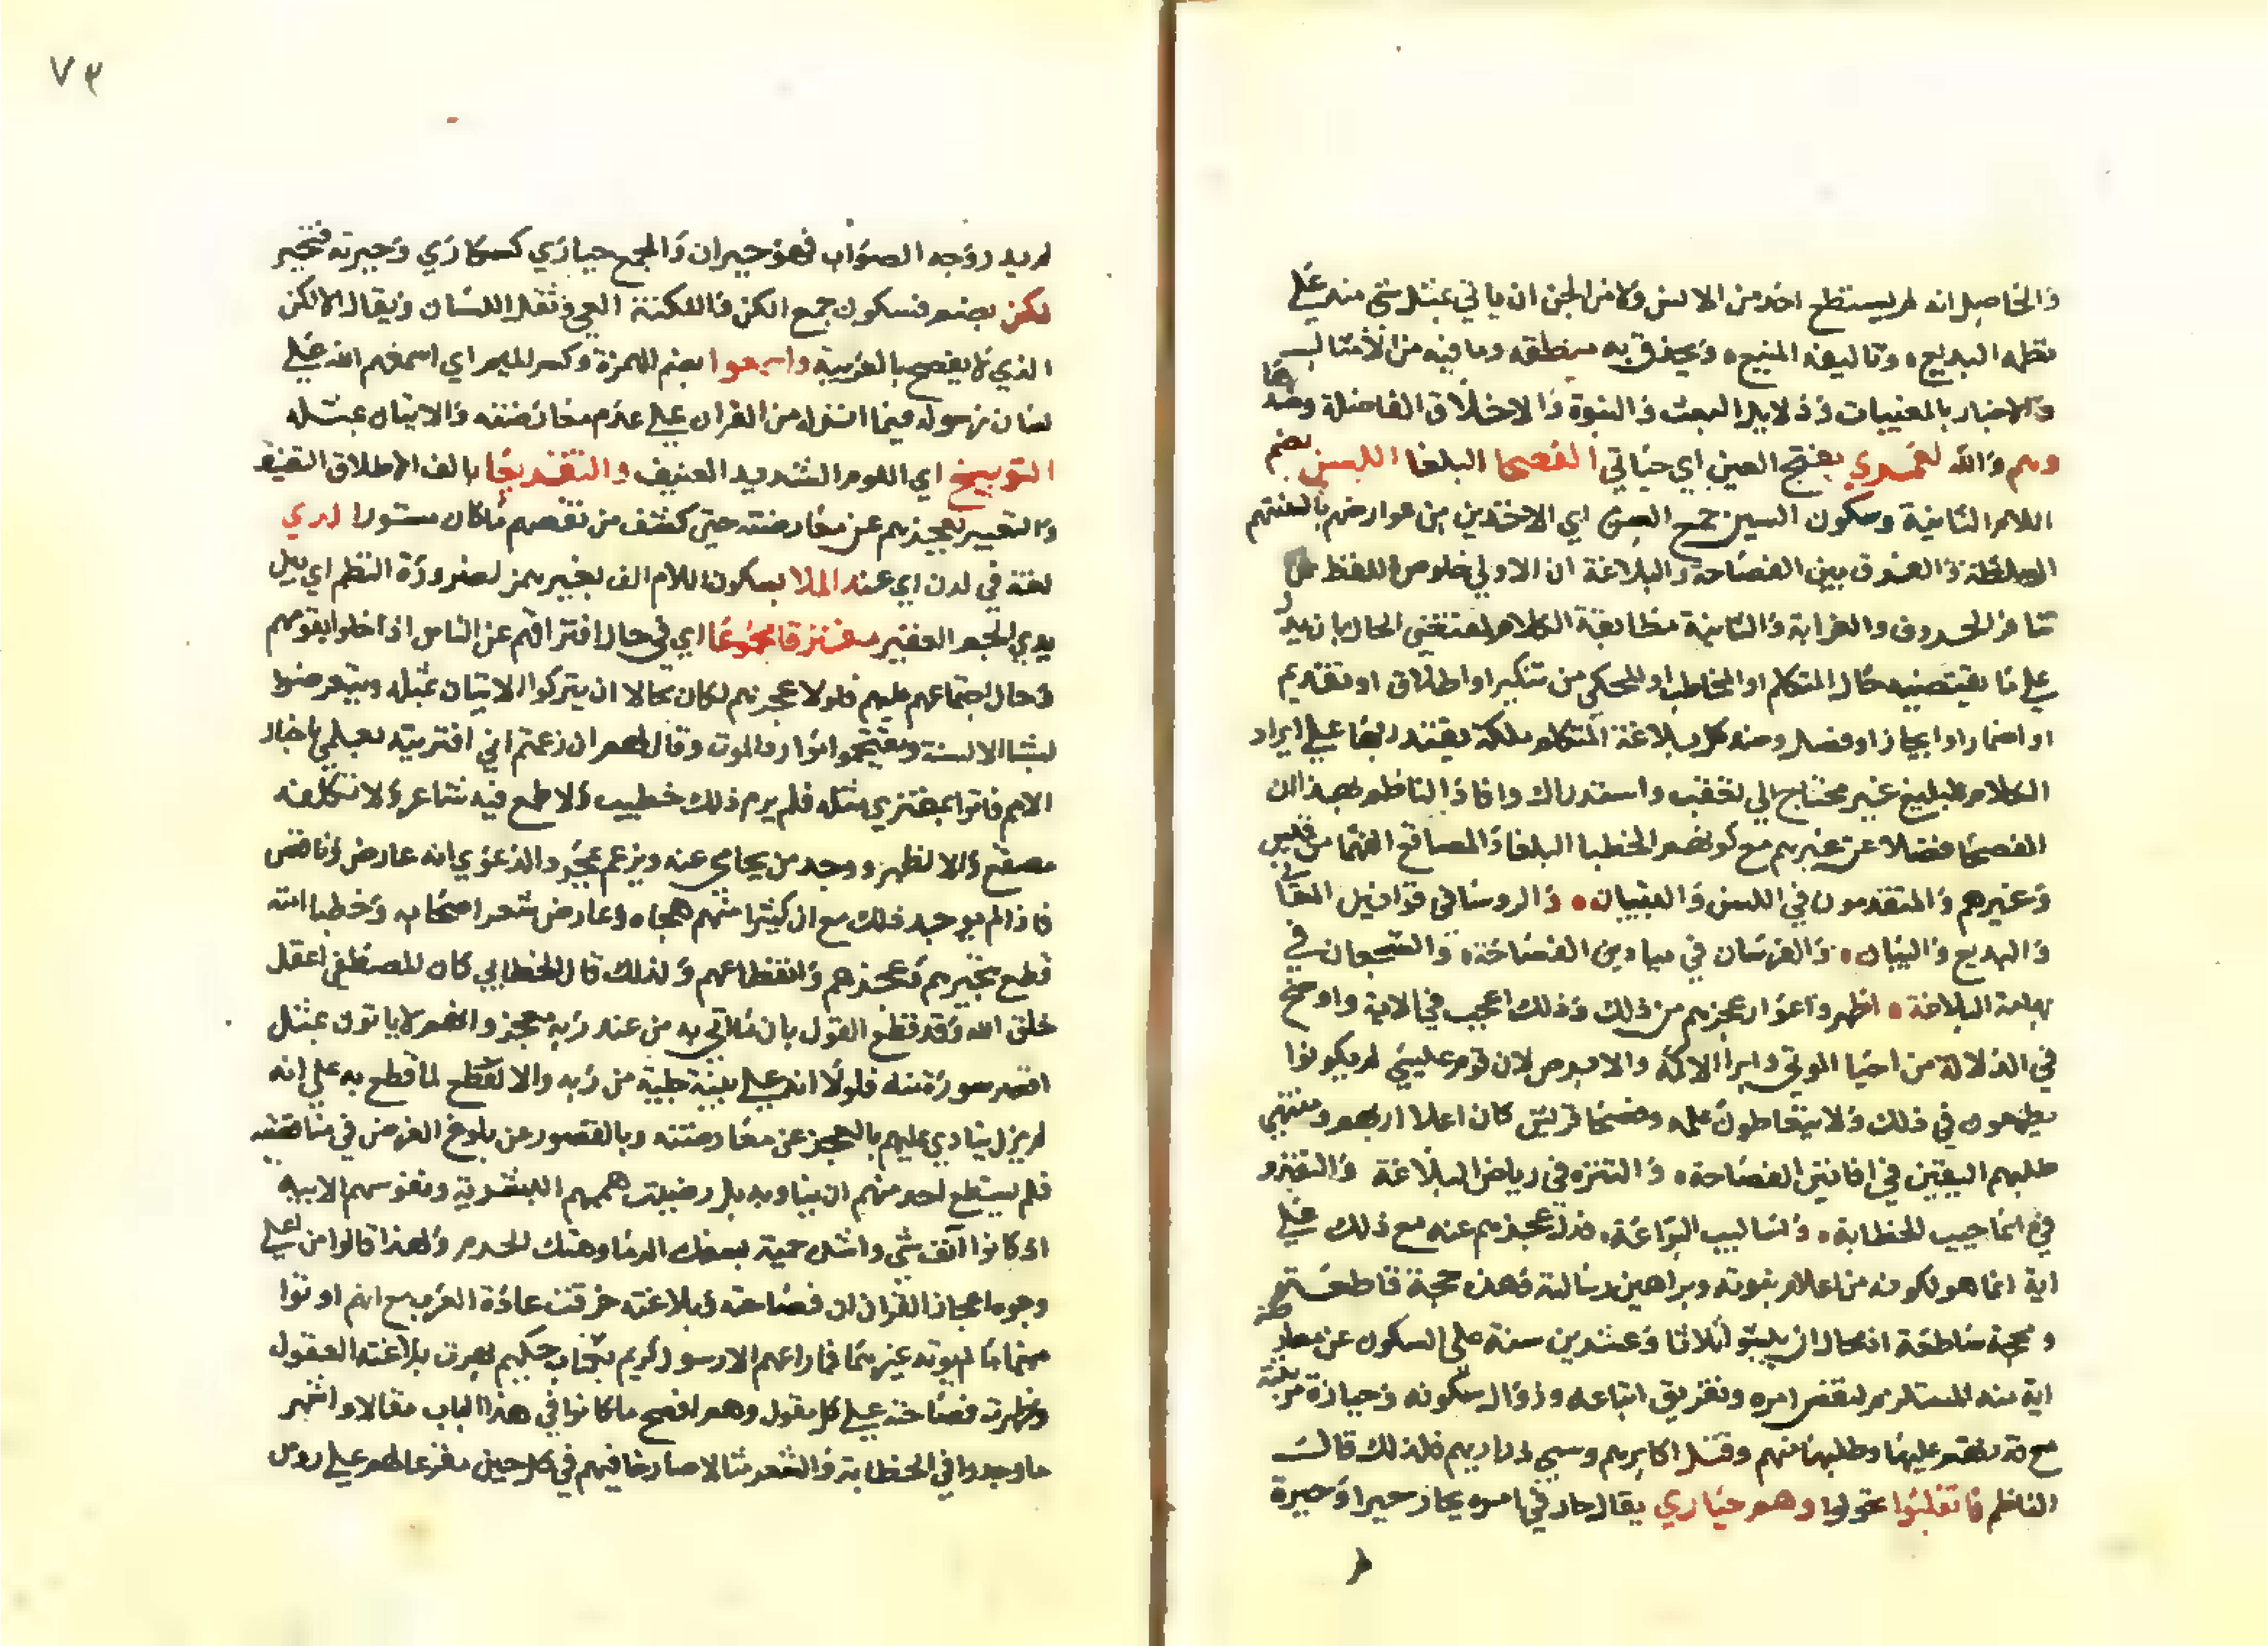 والحاصل انه لم يستطع احد من الانس ولا من الجن ان ياتي بمثل شي منه علي
نظمه البديع، وتاليفه المنيع، وعذوبة منطقه وما فيه من الامثال
والاخبار بالمغيبات ودلايل البعث والنبوة والاخلاق الفاضلة وضدها
وهم والله لعمري بفتح العين اي حياتي الفصحا البلغا اللسن بضم
اللام الثانية وسكون السين جمع السن اي الاخذين من عوارضهم بالسنتهم
السلطة والفرق بين الفصاحة والبلاغة ان الاولي خلوص اللفظ من
تنافر الحروف والغرابة والثانية مطابقة الكلام لمقتضي الحال بان يدل
علي ما يقتضيه حال المتكلم او المخاطب او المحكي من تنكير او اطلاق او تقديم
او اضمار او ايجاز او فصل وضد كل بلاغة المتكلم ملكة يقتدر بها علي ايراد
الكلام البليغ غير محتاج الي تعقب واستدراك وافاد الناظم بهذا ان
الفصحا فضلا عن غيرهم مع كونهم الخطبا البلغا والمصاقع الفهما من قيس
وغيرهم والمتقدمون في اللسن والبيان، والروسا في قوافل المعا
والبديع والبيان، والفرسان في ميادين الفصاحة، والشجعان في
بهامة البلاغة، اظهروا عوار عجزهم من ذلك وذلك اعجب في الاية واوضح
في الدلالة من احيا الموتي وابرا الاكمه والابرص لان قوم عيسي لم يكونوا
يطمعون في ذلك ولا يتعاطون علمه وفصحا قريش كان اعلا اربهم ومنتهي
طلبهم اليقين في افانين الفصاحة، والتنزه في رياض البلاغة والتفرد
في اعاجيب الخطابة، واساليب البراعة، فدل عجزهم عنه مع ذلك علي
اية انما هو لكونه من اعلام نبوته وبراهين رسالته فهذه حجة قاطعة
ومحجة ساطعة اذ محال ان يلبثوا ثلاثا وعشرين سنة علي السكوت عن معارضة
اية منه المستلزم لنقض امره وتفريق اتباعه وزوال شكوته وحيازة مرتبته
مع قدرتهم عليها وطلبها منهم وقتل اكابرهم وسبي ذراريهم فلذلك قال
الناظم فانقلبوا عقولوا وهم حياري يقال حار في امره يحار حيرا وحيرة
لم
٧٣
لم يدر وجه الصواب فهو حيران والجمع حياري كسكاري وحيرته فتحير
لكن بضم فسكون جمع الكن فاللكنة العي وثقل اللسان ويقال الالكن
الذي لا يفصح بالعربية واسمعوا بضم الهمزة وكسر الميم اي اسمعهم الله علي
لسان رسوله فيما انزل من القران علي عدم معارضته والاتيان بمثله
التوبيخ اي اللوم الشديد العنيف والتقريعا بالف الاطلاق التعنيف
والتعيير بعجزهم عن معارضته حتي كشف من نقصهم ماكان مستورا لدي
لغة في لدن اي عند الملا بسكون اللام الف بغير همز لضرورة النظم اي بين
يدي الجم الغفير مفترقا مجموعا اي في حال افتراقهم عن الناس اذا خلوا بقومهم
وحال اجتماعهم عليهم فلولا عجزهم لكان محالا ان يتركوا الاتيان بمثله ويتعرضوا
لشبا الالسنة ويقتحموا موارد الموت وقال لهم ان زعمتم اني افتريته لعلمي باخبار
الامم فاتوا بمفتري مثله فلم يرم ذلك خطيب ولا طمع فيه شاعر ولا تكلفه
مصقع والا لظهر ووجد من يحامي عنه ويزعم بمجرد الدعوي انه عارض وناقض
فاذا لم يوجد ذلك مع ان كثيرا منهم هجاه وعارض شعر اصحابه وخطبا امته
قطع بتحيرهم وعجزهم وانقطاعهم ولذلك قال الخطابي كان المصطفي اعقل
خلق الله وقد قطع القول بان ما اتي به من عند ربه معجز وانهم لا ياتون بمثل
اقصر سورة منه فلولا انه علي بينة جلية من ربه والا لما قطع به علي انه
لم يزل ينادي عليهم بالعجز عن معارضته وبالقصور عن بلوغ الغرض في مناقضته
فلم يستطع احد منهم ان يناويه بل رضيت هممهم البشرية ونفوسهم الابيه
اذ كانوا انف شي واشد حمية بسفك الدما وهتك الحرم ولهذا قالوا من اعلي
وجوه اعجاز القران ان فصاحته وبلاغته خرقت عادة العرب مع انهم اوتوا
منهما ما لم يوته غيرهما فما راعهم الا رسول كريم بكتاب حكيم بهرت بلاغته العقول
وظهرت فصاحته علي كل مقول وهم افصح ما كانوا في هذا الباب مقالا واشهر
ما وجدوا في الخطابة والشعر مثالا صارخا فيهم في كل حين مقرعا لهم علي روس